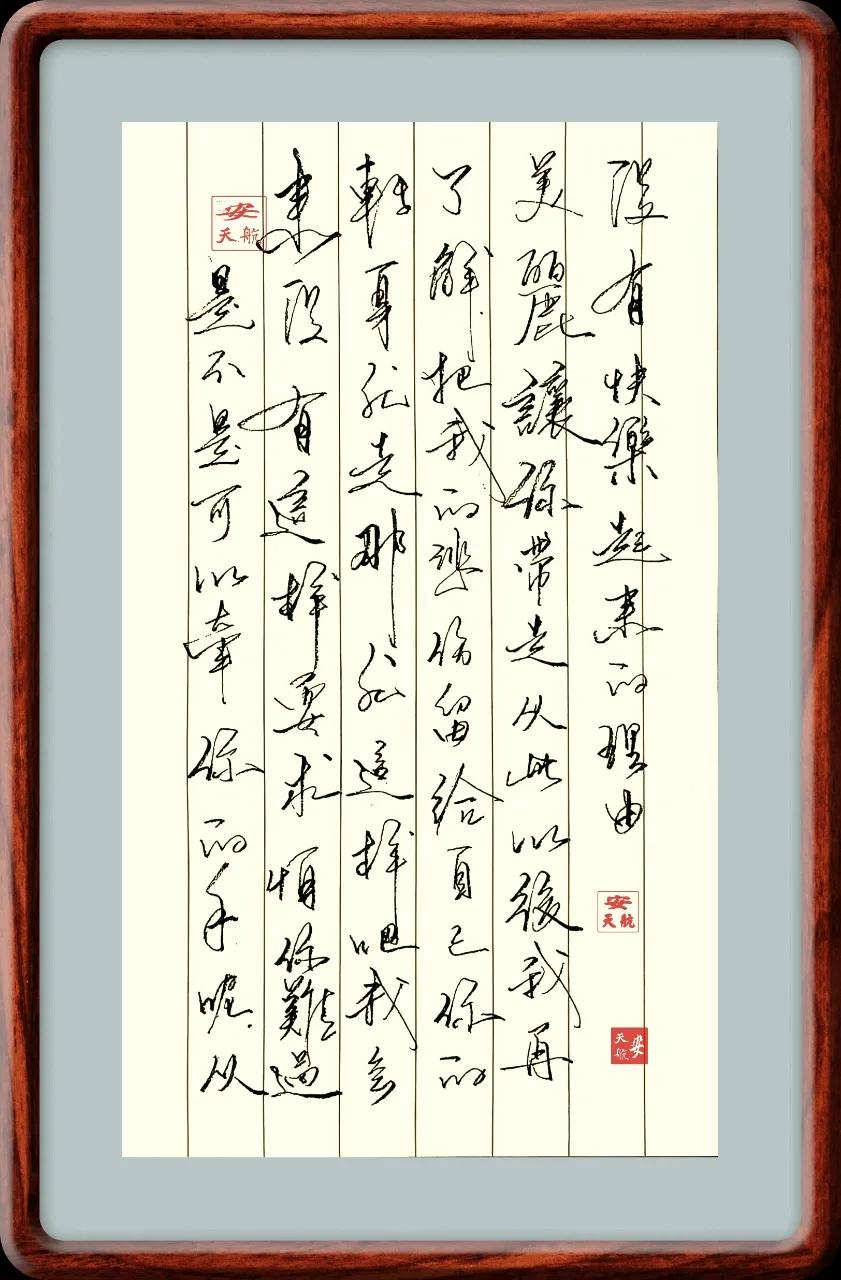 安天航
是不是可以牽你的手呢从
來没有這样要求怕你難過
轉身就走那就這样吧我会
了解把我的悲伤留給自己你的
美麗讓你帶走从此以後我再
没有快樂起來的理由
安天航
安天航